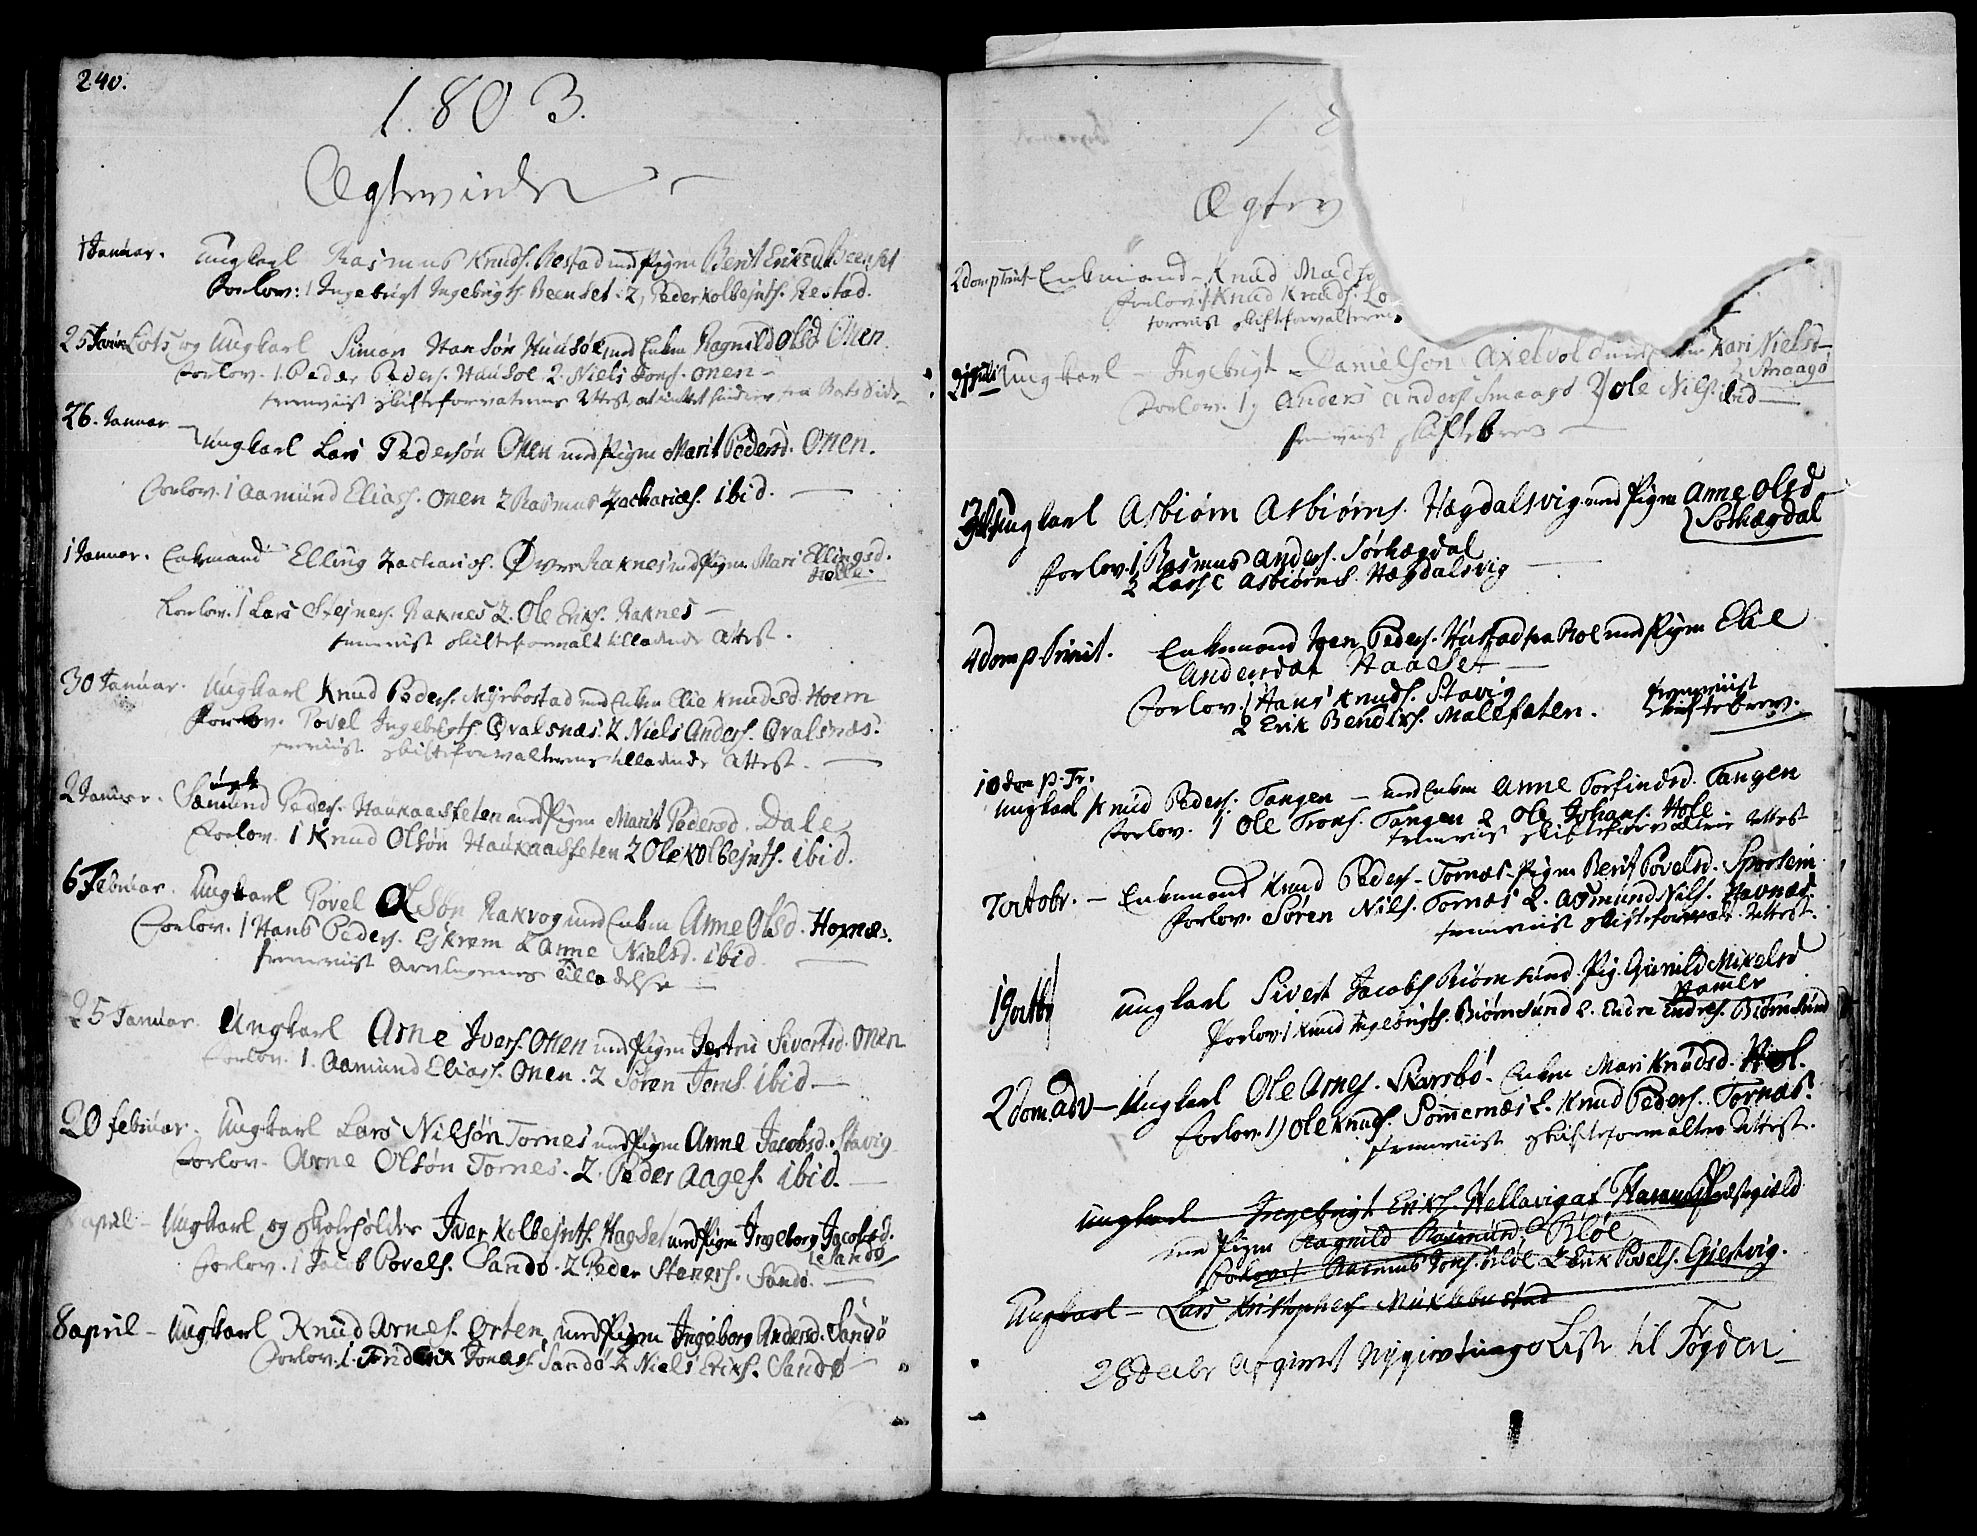 240.
1803.
Ægteviede
1 Januar. Ungkarl Rasmus Knuds. Restad med Pigen Berit Eriksd. Beenset
Forlov: 1 Ingebrigt Ingebrigts. Beenset. 2, Peder Kolbejns. Restad.
25 Januar Lots og Ungkarl Simon Hansøn Huusøe med Enken Ragnild Olsd Onen.
Forlov. 1. Peder Peders. Huusøe 2. Niels Tors. Onen -
fremviist Skifteforvalterens Attest at intet hindrer fra
26. Januar
Ungkarl Lars Pedersøn Onen med Pigen Marit Pedersd. Onen.
Forlov. 1 Aamund Elias. Onen 2 Rasmus Zacharies. ibid.
1 Januar. Enkemand Elling Zacharies. Øvre Raknes med Pigen Mari Ellingsd.
Holle.
Forlov. 1 Lars Stejners. Raknes 2. Ole Eriks. Raknes -
fremviist Skifteforvalt tilladende Attest.
30 Januar. Ungkarl Knud Peders. Myrbostad med Enken Elie Knudsd. Hoem
Forlov. Povel Ingebrigts. Qvalsnæs. 2 Niels Anders. Qvalsnæs.
fremviist Skifteforvalterens tilladende Attest.
2 Januar. Ungk
Sæmund Peders. Haukaasfeten med Pigen Marit Pedersd. Dale
Forlov. 1 Knud Olsøn Haukaasfeten 2 Ole Kolbejns. ibid.
6 Februar. Ungkarl Povel Olsøn Rakvog med Enken Anne Olsd. Hornæs.
Forlov. 1 Hans Peders. Ejkrem 2 Anne Nielsd. ibid.
fremviist Arvingernes Tilladelse -
25 Januar. Ungkarl Arne Ivers. Onen med Pigen Jertru Sivertsd. Onen
Forlov. 1. Aamund Elias. Onen. 2 Søren Jens. ibid.
20 februar. Ungkarl Lars Nilsøn Tornes med Pigen Anne Jacobsd. Stavig
Forlov. Arne Olsøn Tornes. 2. Peder Aages. ibid.
april - Ungkarl og Skoleholder Iver Kolbejns. Hagset med Pigen Ingeborg Jacobsd.
Sandø
Forlov. 1 Jacob Povels. Sandø. 2 Peder Steners. Sandø.
8 april - Ungkarl Knud Arnes. Orten, med Pigen Ingeborg Andersd. Sandø
Forlov. 1. Jonas. Sandø 2 Niels Eriks. Sandø
1
Ægtev
2 dom p Trint - Enkemand - Knud Mads
Forlov. 1 Knud Knuds. Lo
fremviist Skifteforvalterens
Juli Ungkarl - Ingebrigt Danielson Axelvold med Kari Nielsd -
Smaagø
Forlov. 1, Anders Anders. Smaagø 2, Ole Nils. ibid -
fremviist Skiftebrev -
Ungkarl Asbiørn Asbiørns. Hægdalsvig med Pigen Anne Olsd
Sørhægdal
Forlov. 1 Rasmus Anders. Sørhægdal
2 Lasse Asbiørns. Hægdalsvig
4 dom p Trinit. Enkemand Iven Peders. Hustad fra Roe med Pigen Elie
Andersdat Haaset -
Forlov. 1 Hans Knuds. Stavig
2 Erik Bendixs. Malefeten. fremviist
Skiftebrev.
10 dom p. Tr.
Ungkarl Knud Peders. Tangen - med Enken Anne Torfindsd. Tangen
Forlov. 1 Ole Trons. Tangen 2 Ole Johans. Hole
fremviist Skifteforvalter Attest
7 October. - Enkemand Knud Peders. Tornæs - Pigen Berit Povelsd. Sporsem
Forlov. Søren Nils. Tornæs 2. Aasmund Nils. Havnæs.
fremviist Skifteforvalt. Attest.
19 octbr Ungkarl Sivert Jacobs Biørnsund. Pig. Gunild Mikelsd
Forlov. 1 Knud Ingebrigts. Biørnsund 2. Endre Endres. Biørnsund
2 dom. adv - Ungkarl Ole Arnes. Skarsbø. Enken Mari Knudsd. Hol.
Forlov. 1) Ole Knuds. Sømmernæs 2. Knud Peders. Tornæs.
fremviist Skifteforvalter Attest.
Ungkarl Ingebrigt Eriks. Hellavig af Præstegield
med Pigen Ragnild Rasmusd. Bløe
Forlov. 1 Rasmus Jons. Bløe. 2 Erik Povels. Giestvig.
Ungkarl - Lars Kristophers Mieklebustad
28 Decbr Afgivet Nygivtings Liste til Fogden -